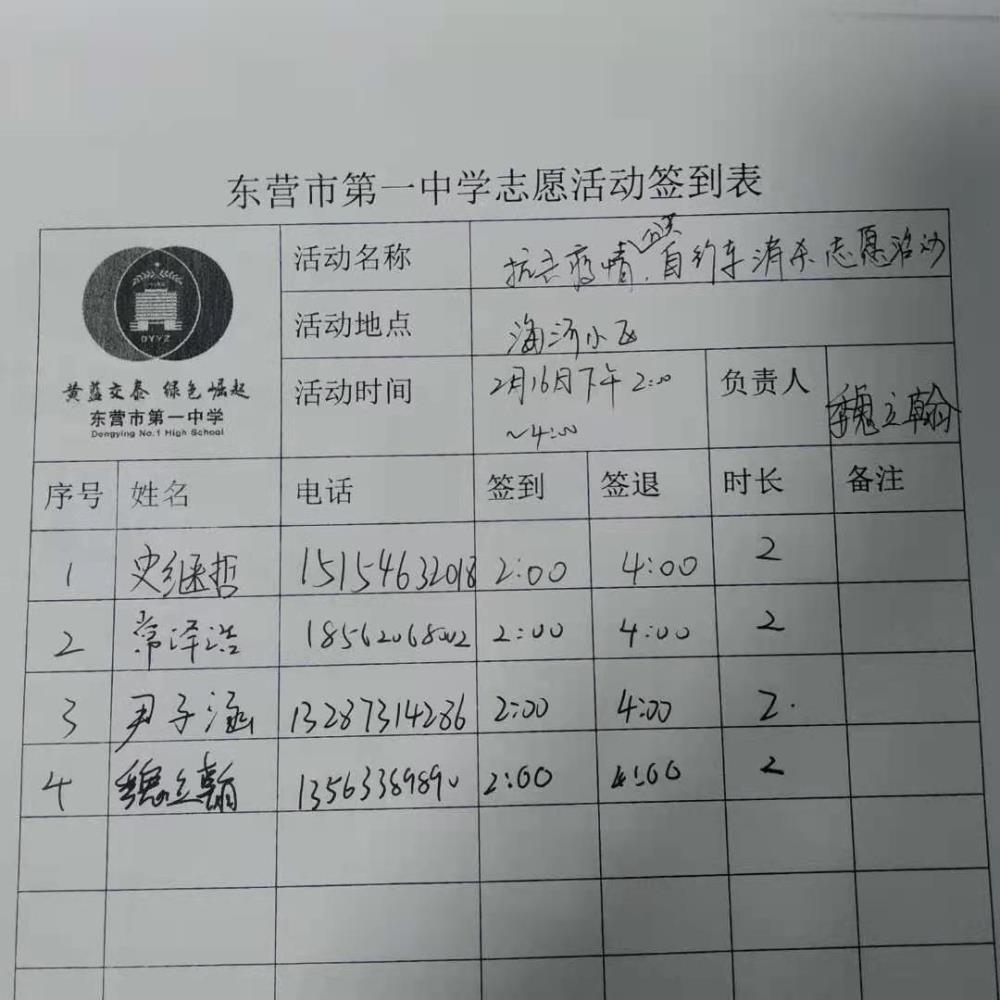 东营市第一中学志愿活动签到表
DYYZ
黄蓝交泰 绿色崛起
东营市第一中学
Dongying No.1 High School
活动名称 抗击疫情、自行车消杀志愿活动
活动地点 海河小区
活动时间 2月16日下午2:00
~4:00
负责人 魏立翰
序号 姓名 电话 签到 签退 时长 备注
1 史继哲 15154632018 2:00 4:00 2
2 常泽浩 18562068002 2:00 4:00 2
3 尹子涵 13287314286 2:00 4:00 2.
4 魏立翰 13563369890 2:00 4:00 2